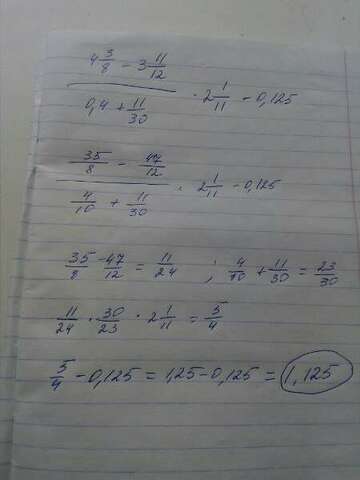 4 3/8 - 3 11/12
0,4 + 11/30
· 2 1/11 - 0,125
35/8 - 47/12
4/10 + 11/30
· 2 1/11 - 0,125
35/8 - 47/12 = 11/24 ; 4/10 + 11/30 = 23/30
11/24 · 30/23 · 2 1/11 = 5/4
5/4 - 0,125 = 1,25 - 0,125 = 1,125